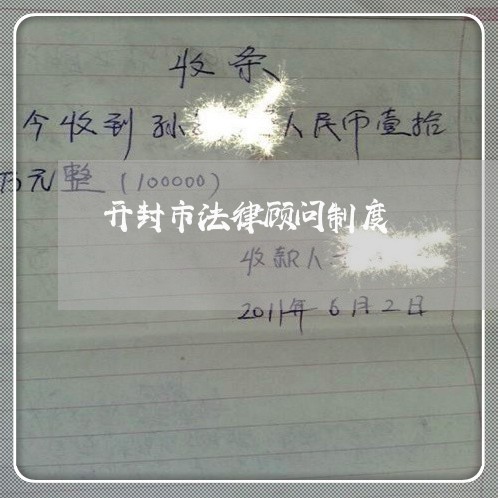 收条
今收到孙 人民币壹拾
万元整(100000)
开封市法律顾问制度
收款人
2011年6月2日